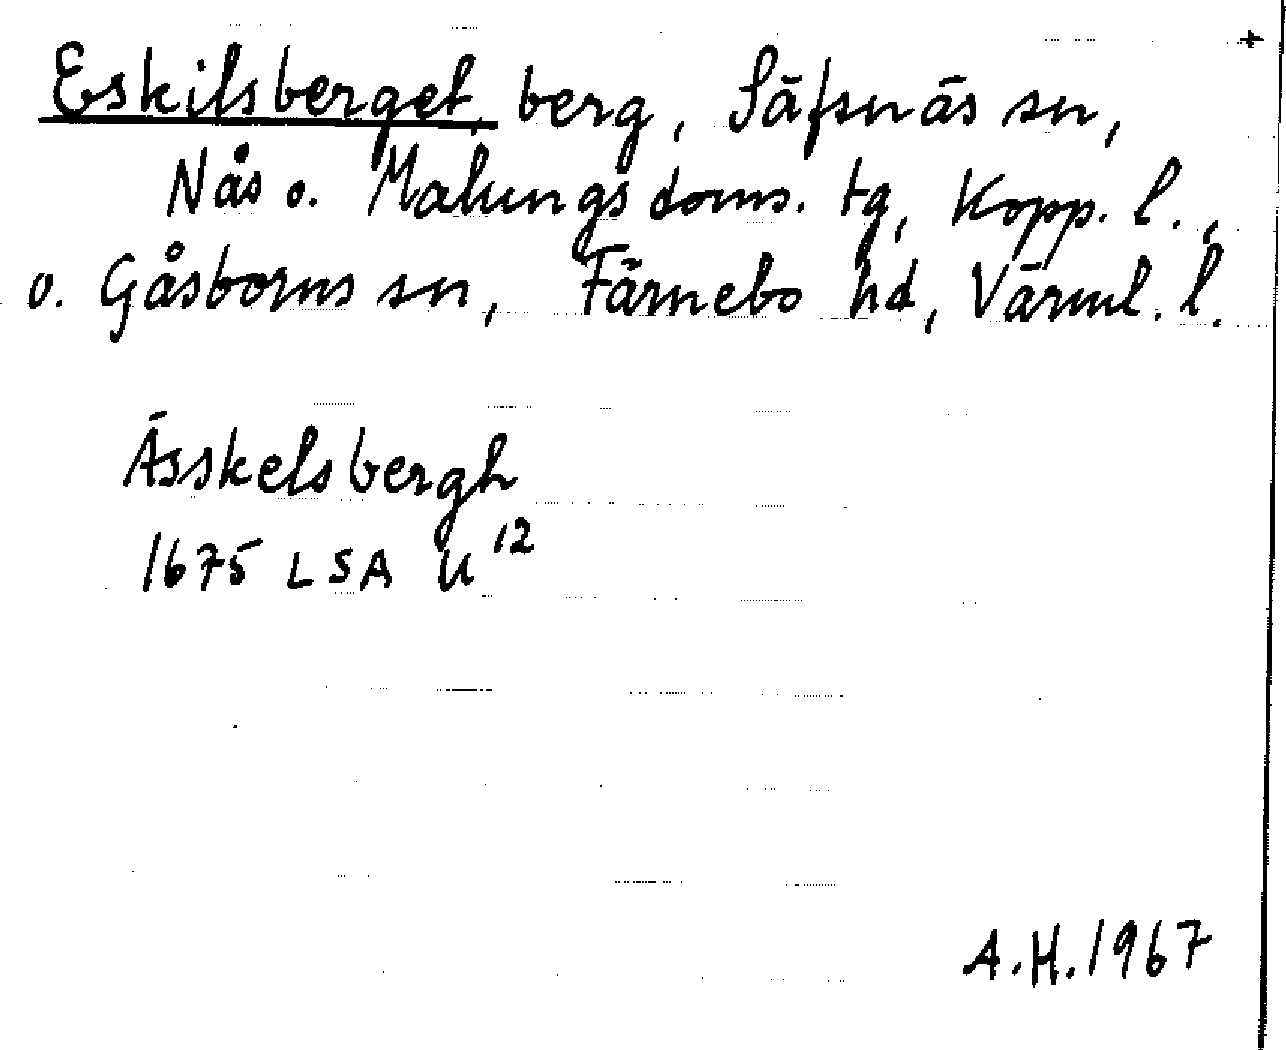 Eskilsberget, berg, Säfsnäs sn,
Nås o. Malungs doms. tg, Kopp. l.,
o. Gåsborns sn, Färnebo hd, Värml. l.
Ässkelsbergh
1675 LSA U 12
A.H. 1967